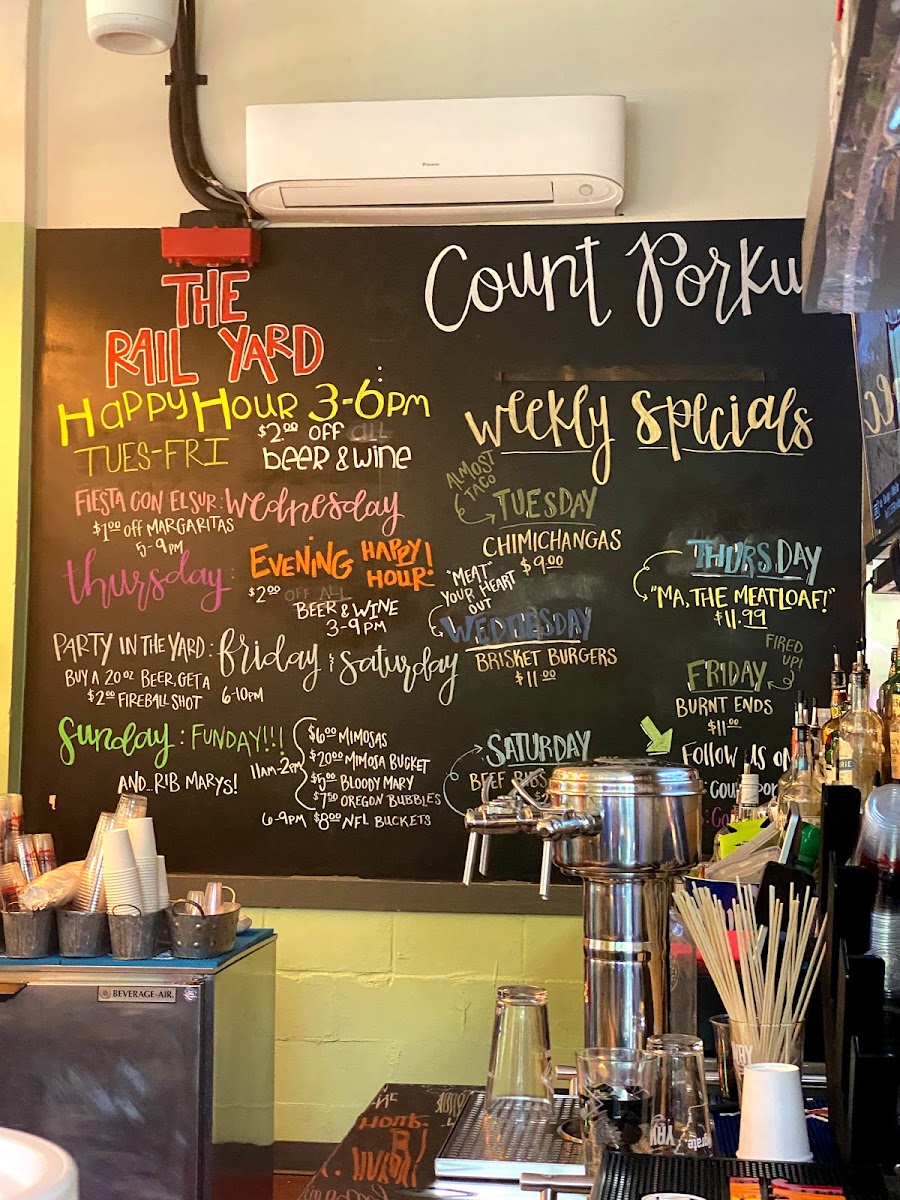 DAIKIN
THE
RAIL YARD
HAPPY HOUR 3-6PM
TUES-FRI
$2.00 OFF ALL
BEER & WINE
FIESTA CON EL SUR: Wednesday
$1.00 off MARGARITAS
5-9PM
thursday: EVENING HAPPY HOUR!
$2.00 OFF ALL
BEER & WINE
3-9PM
PARTY IN THE YARD: friday & saturday
BUY A 20oz BEER, GET A
$2.00 FIREBALL SHOT
6-10PM
Sunday: FUNDAY!!!
AND...RIB MARYS!
11AM-2PM
$6.00 MIMOSAS
$20.00 MIMOSA BUCKET
$5.00 BLOODY MARY
$7.50 OREGON BUBBLES
6-9PM $8.00 NFL BUCKETS
Count Porku
Weekly Specials
ALMOST
TACO
TUESDAY
CHIMICHANGAS
$9.00
"MEAT"
YOUR HEART
OUT
WEDNESDAY
BRISKET BURGERS
$11.00
THURSDAY
"MA, THE MEATLOAF!"
$11.99
FIRED
UP!
FRIDAY
BURNT ENDS
$11.00
SATURDAY
BEEF RIBS
FOLLOW US ON
BEVERAGE-AIR